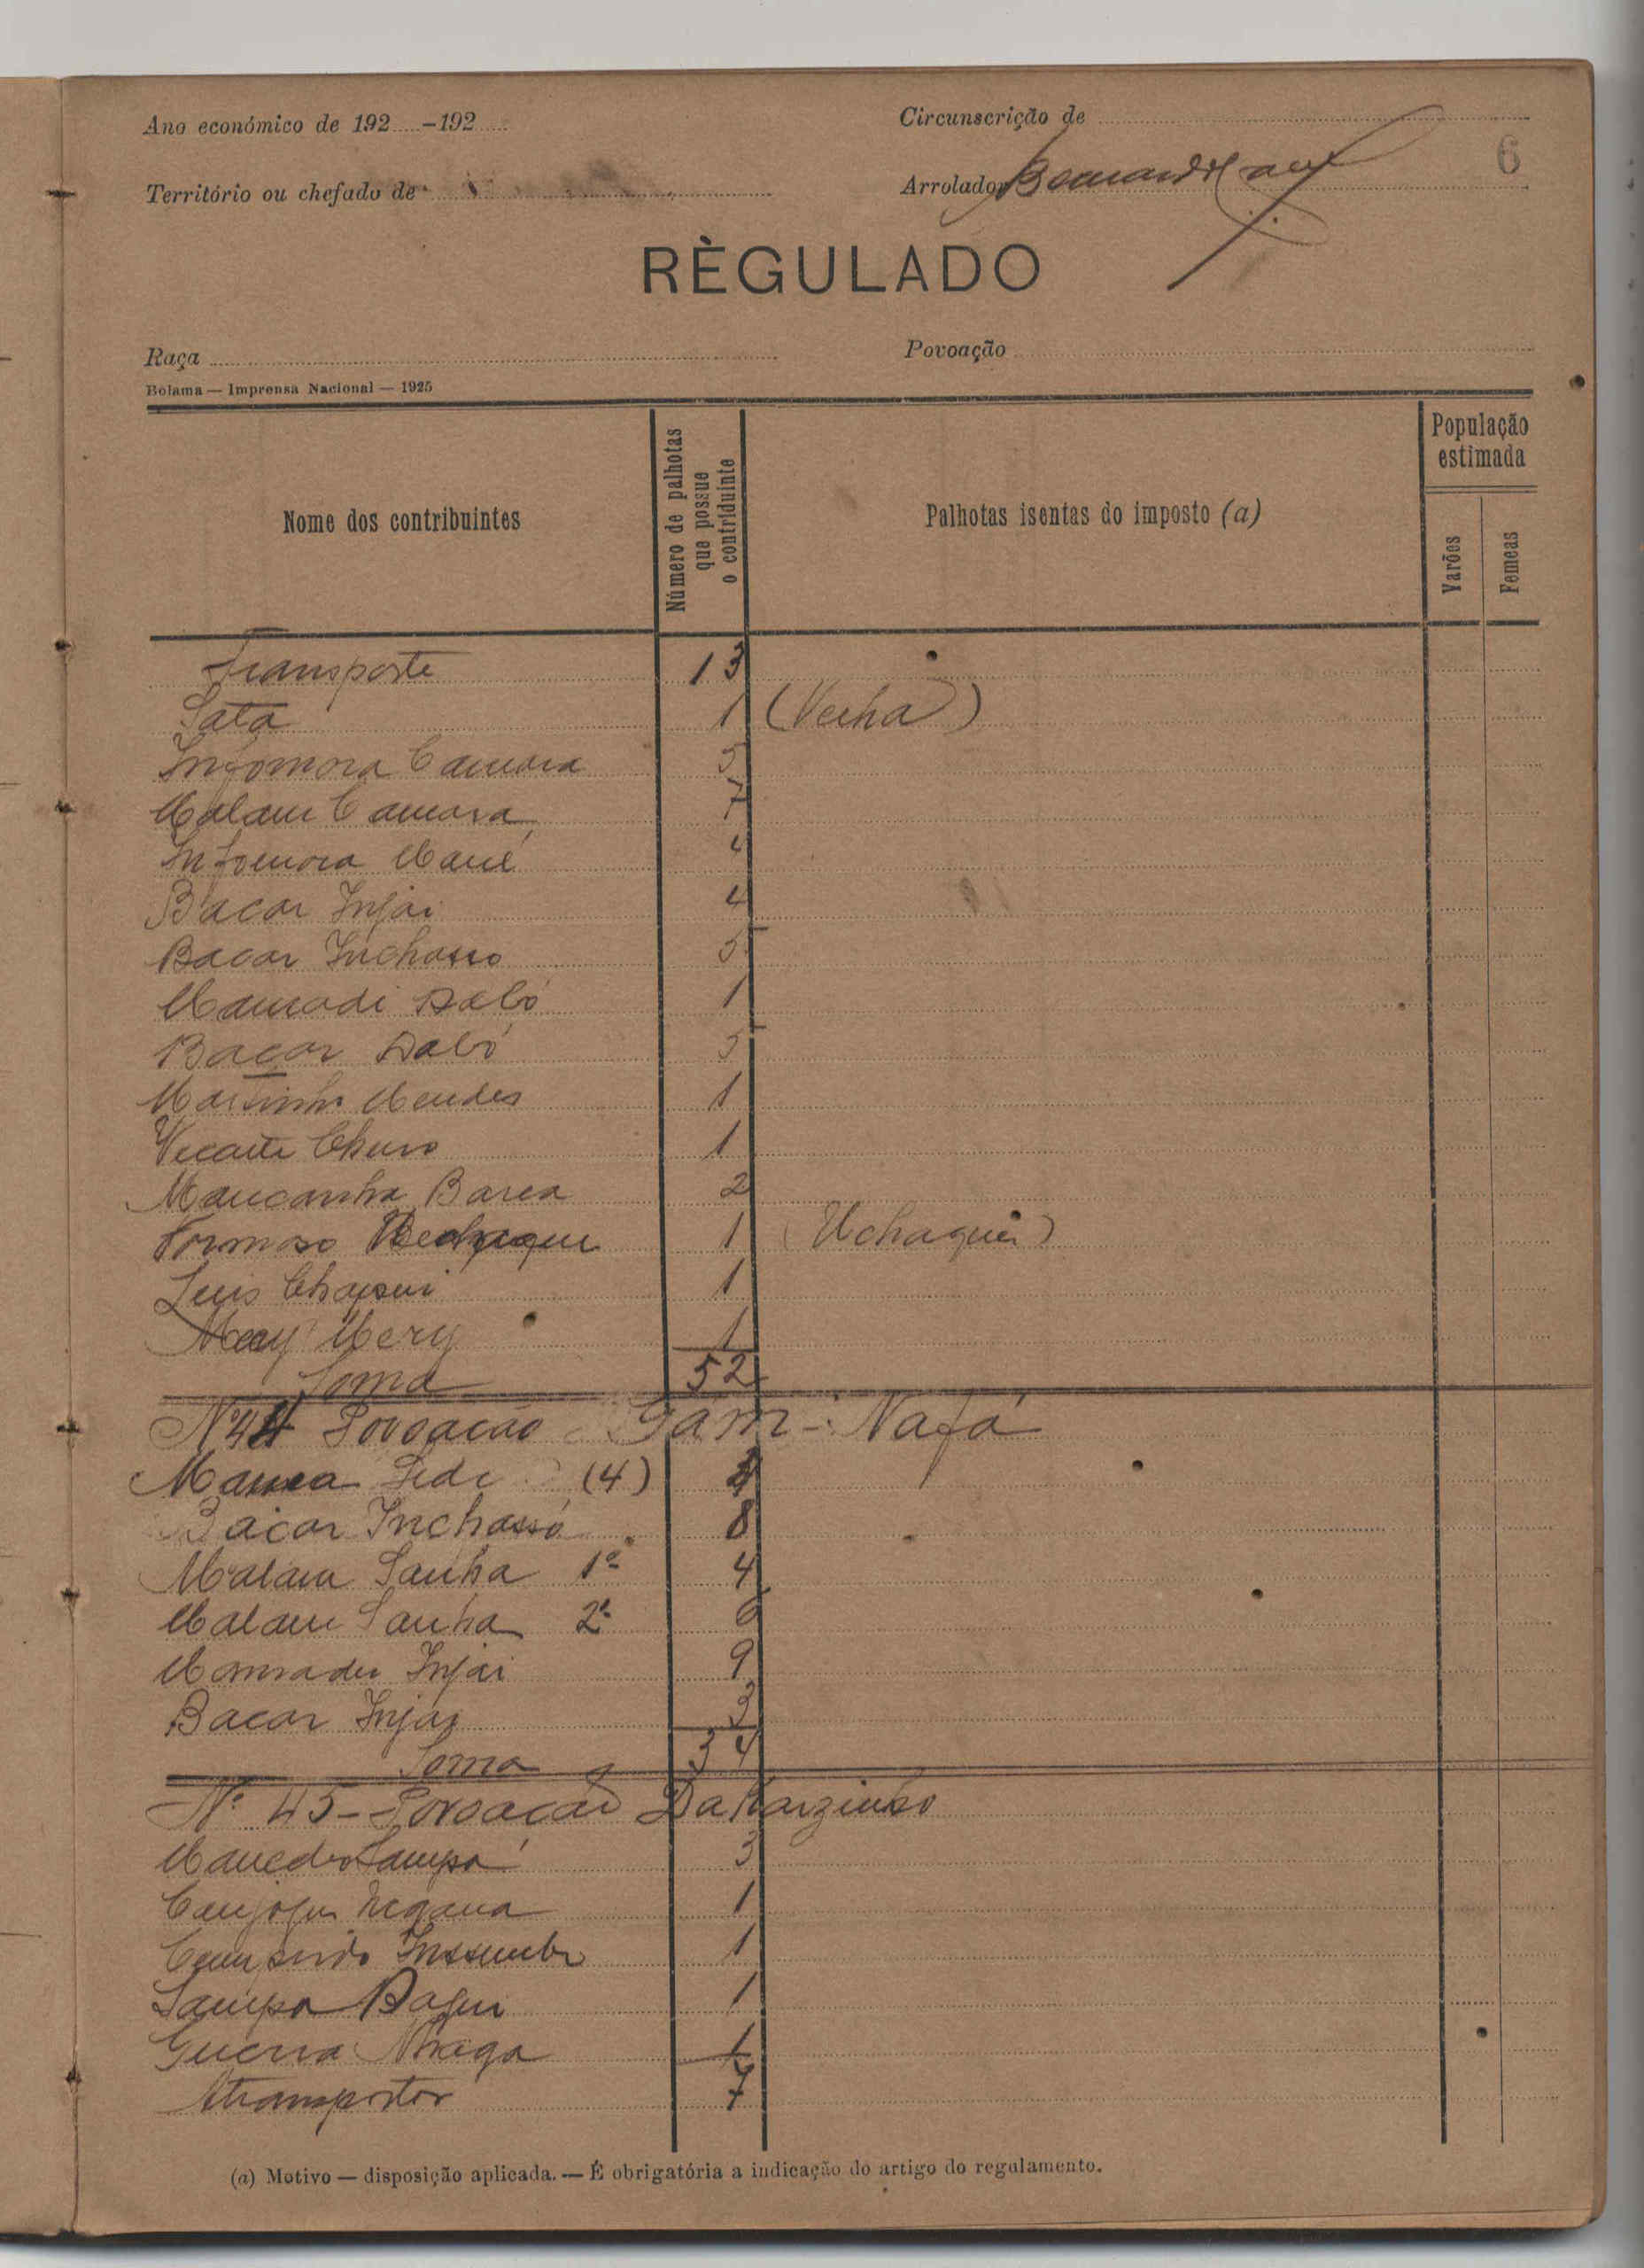 Ano económico de 192 -192
Circunscrição de
6
Território ou chefado de
Arrolador
RÈGULADO
Raça
Povoação
Bolama — Imprensa Nacional — 1925
Nome dos contribuintes
Número de palhotas que possue o contriduinte
Palhotas isentas do imposto (a)
População estimada
Varões
Femeas
Transporte 13
Sata 1 (Velha)
Infomora Camara 5
Malam Camara 7
Infomora Mané 4
Bacar Injai 4
Bacar Inchasso 5
Mamadi Dabó 1
Bacar Dabó 5
Martinho Mendes 1
Vicente 1
Mancanha Barea 2
Formoso 1 (Uchaque)
Luis 1
1
Soma 52
Nº 44 Povoação Gam-Nafá
Mansa Sidi (4) 4
Bacar Inchassó 8
Malam Sanha 1º 4
Malam Sanha 2º 6
Mamadu Injai 9
Bacar Injai 3
Soma 34
Nº 45 - Povoação Dakarzinho
Sampa 3
1
1
Sampa 1
Guerra 1
A transportar 7
(a) Motivo — disposição aplicada. — É obrigatória a indicação do artigo do regulamento.